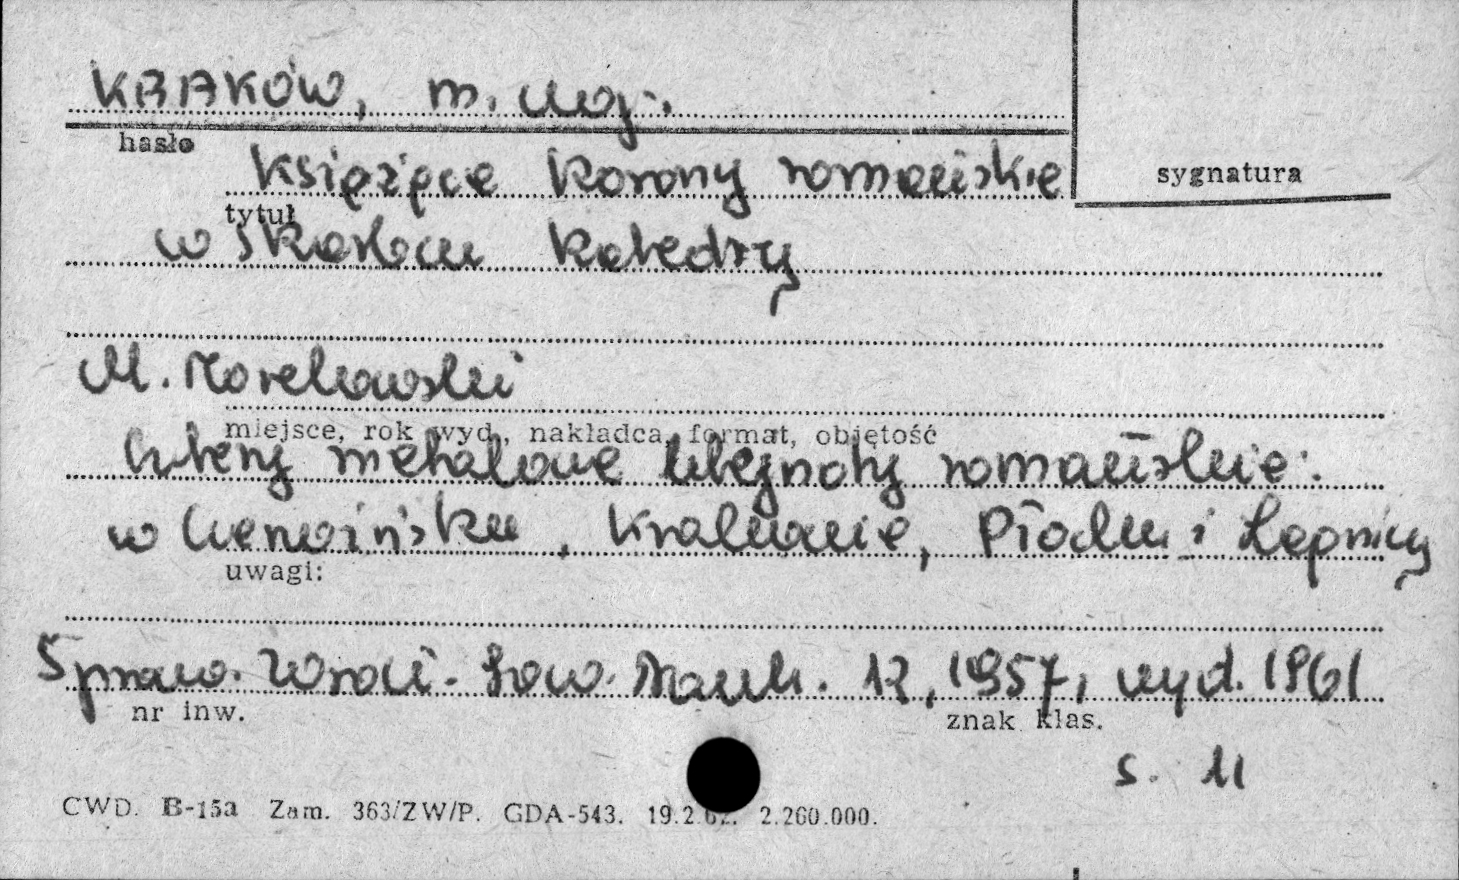 KRAKÓW, m. woj.
hasło
Książęce korony romańskie
sygnatura
tytuł
w skarbcu katedry
M. Morelowski
miejsce, rok wyd., nakładca, format, objętość
Cztery metalowe klejnoty romańskie:
w Czerwińsku, Krakowie, Płocku i Łęczycy
uwagi:
Spraw. Wrocł. Tow. Nauk. 12, 1957, wyd. 1961
nr inw.
znak klas.
s. 11
CWD. B-15a Zam. 363/ZW/P. GDA-543. 19.2.62. 2.260.000.